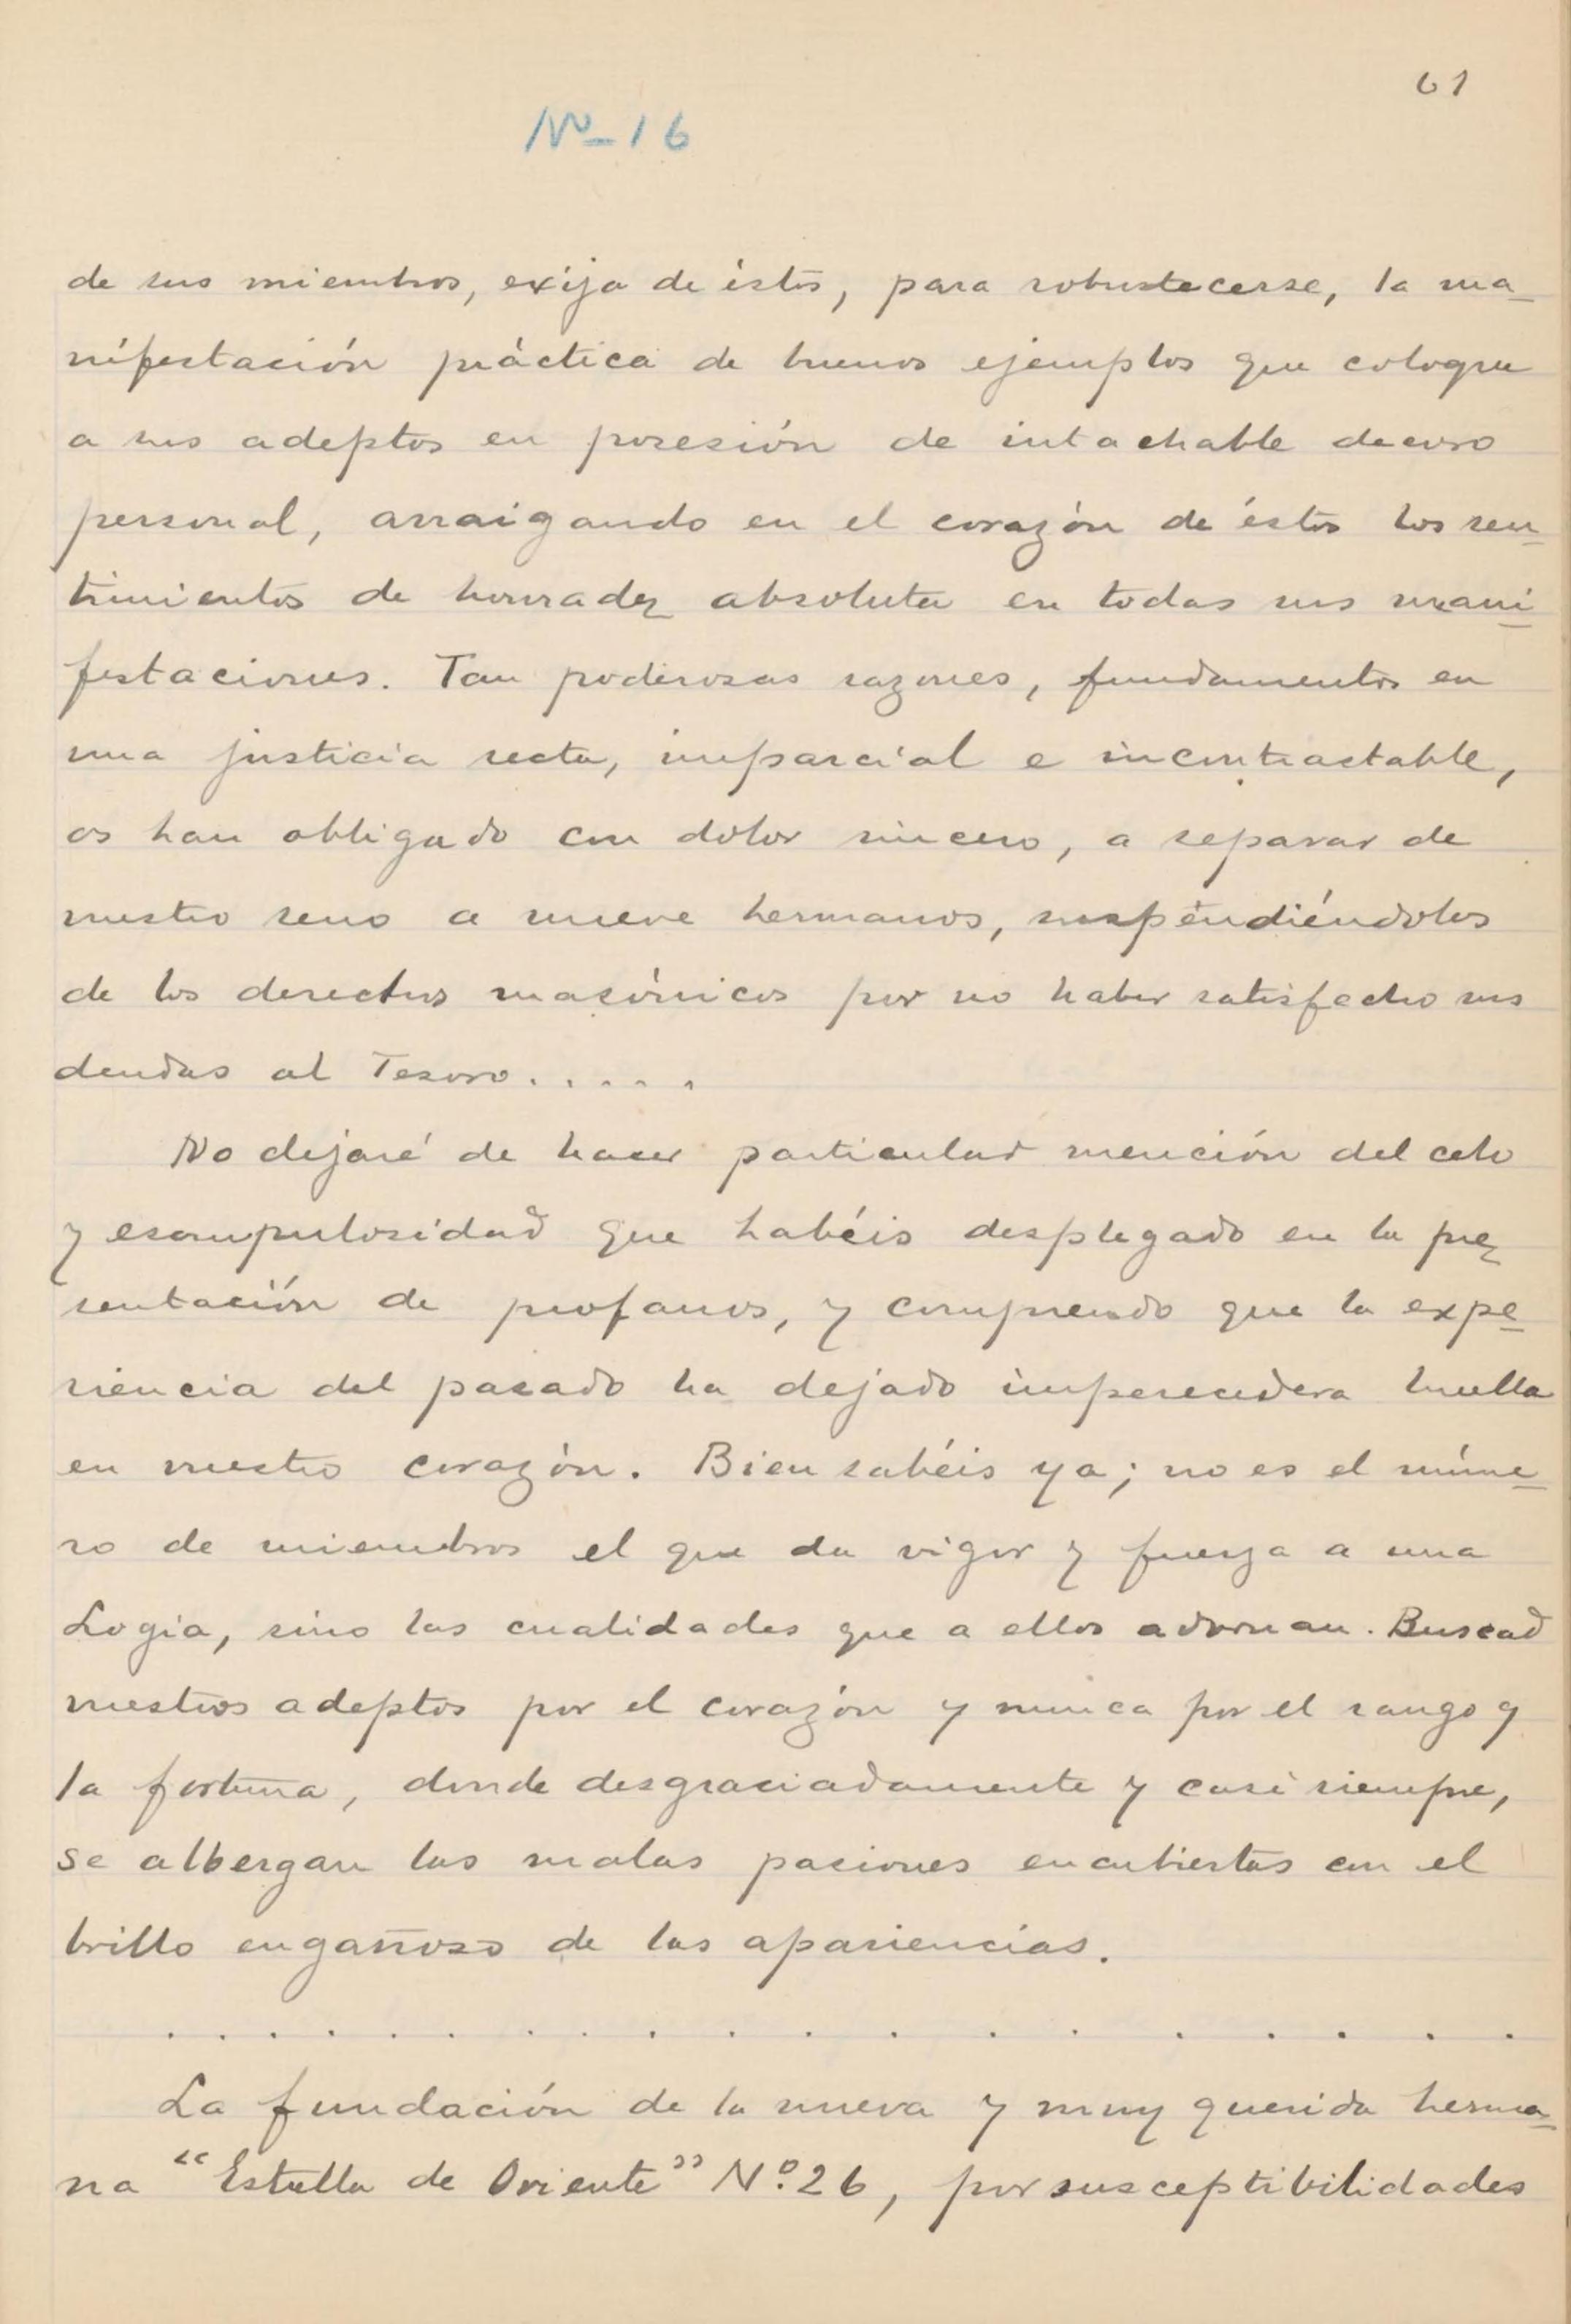 61
Nº-16
de sus miembros, exija de éstos, para robustecerse, la ma-
nifestación práctica de buenos ejemplos que coloque
a sus adeptos en posesión de intachable decoro
personal, arraigando en el corazón de éstos los sen-
timientos de honradez absoluta en todas sus mani-
festaciones. Tan poderosas razones, fundamentos en
una justicia recta, imparcial e incontrastable,
os han obligado con dolor sincero, a separar de
nuestro seno a nueve hermanos, suspendiéndolos
de los derechos masónicos por no haber satisfecho sus
deudas al Tesoro. . . . . .
No dejaré de hacer particular mención del celo
y escrupulosidad que habéis desplegado en la pre-
sentación de profanos, y comprendo que la expe-
riencia del pasado ha dejado imperecedera huella
en nuestro corazón. Bien sabéis ya; no es el núme-
ro de miembros el que da vigor y fuerza a una
Logia, sino las cualidades que a ellos adornan. Buscad
nuestros adeptos por el corazón y nunca por el rango y
la fortuna, donde desgraciadamente y casi siempre,
se albergan las malas pasiones encubiertas con el
brillo engañoso de las apariencias.
. . . . . . . . . . . . . . . . . . .
La fundación de la nueva y muy querida herma-
na "Estrella de Oriente" Nº. 26, por susceptibilidades